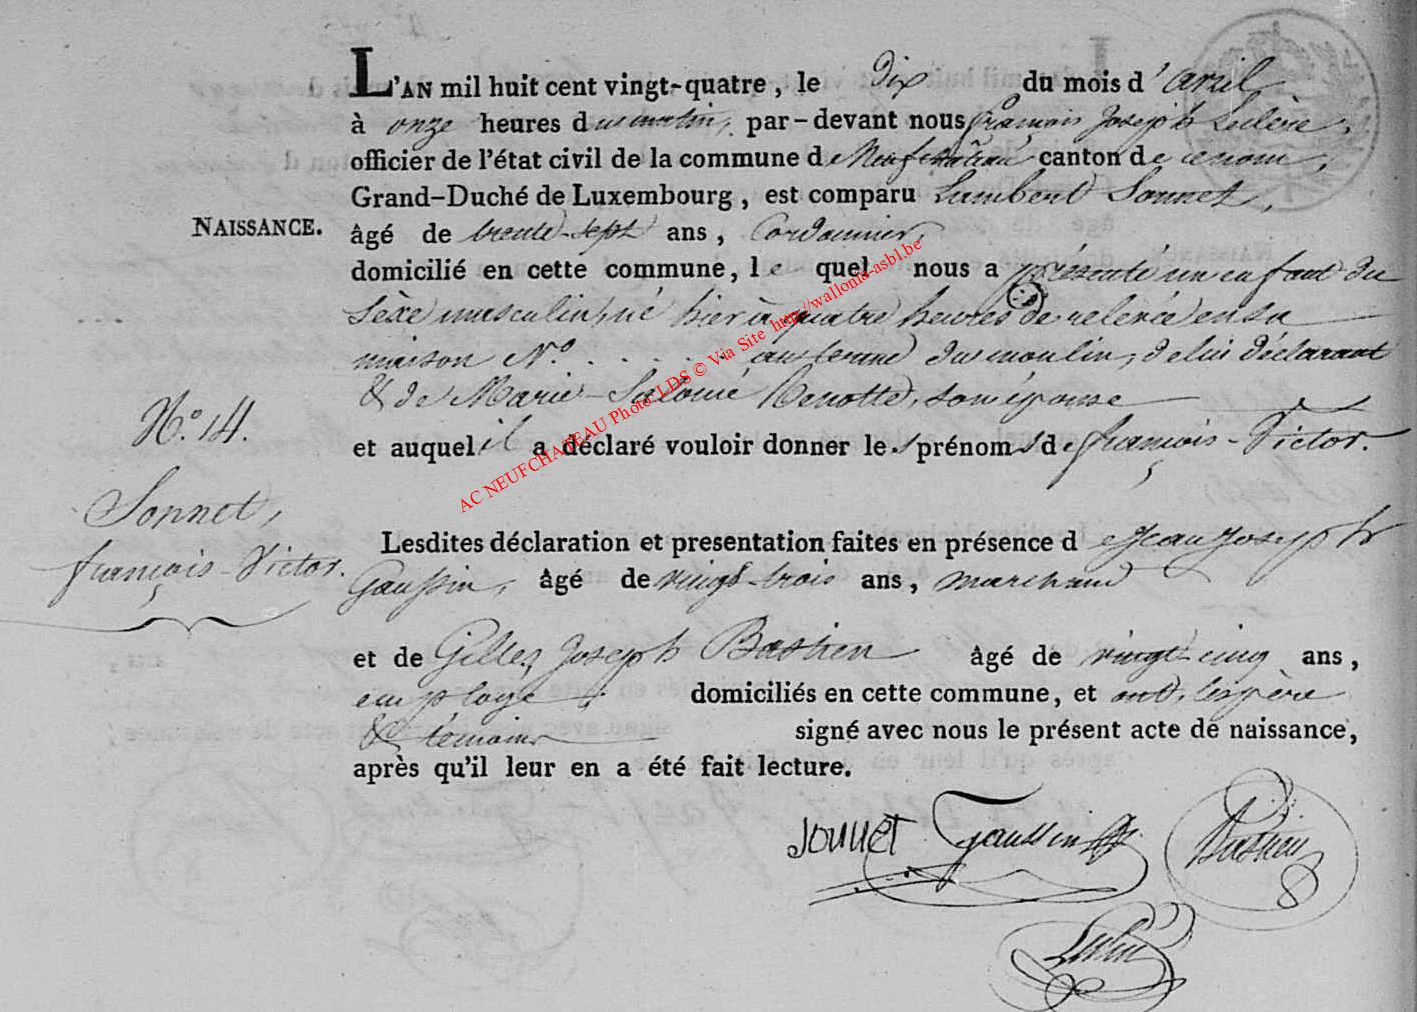 L'AN mil huit cent vingt-quatre, le Dix du mois d'avril
à onze heures du matin, par-devant nous françois Joseph Leclère,
officier de l'état civil de la commune de Neufchâteau canton de ce nom,
Grand-Duché de Luxembourg, est comparu Lambert Sonnet,
NAISSANCE.
âgé de trente-sept ans, Cordonnier,
domicilié en cette commune, le quel nous a présenté un enfant du
sèxe masculin, né hier à quatre heures de relevée en sa
maison N.o . . . . . . du moulin, de lui déclarant
& de Marie-Salomé Henotte, son épouse
N.o 14.
et auquel il a déclaré vouloir donner les prénoms de françois-Victor.
Sonnet,
françois-Victor.
Lesdites déclaration et presentation faites en présence de Jean Joseph
Gaussin, âgé de vingt-trois ans, marchand
et de Gilles Joseph Bastien âgé de vingt-cinq ans,
employé, domiciliés en cette commune, et ont, les père
& témoins signé avec nous le présent acte de naissance,
après qu'il leur en a été fait lecture.
Sonnet Gaussin Bastien
AC NEUFCHATEAU Photo LDS © Via Site http://wallonia-asbl.be